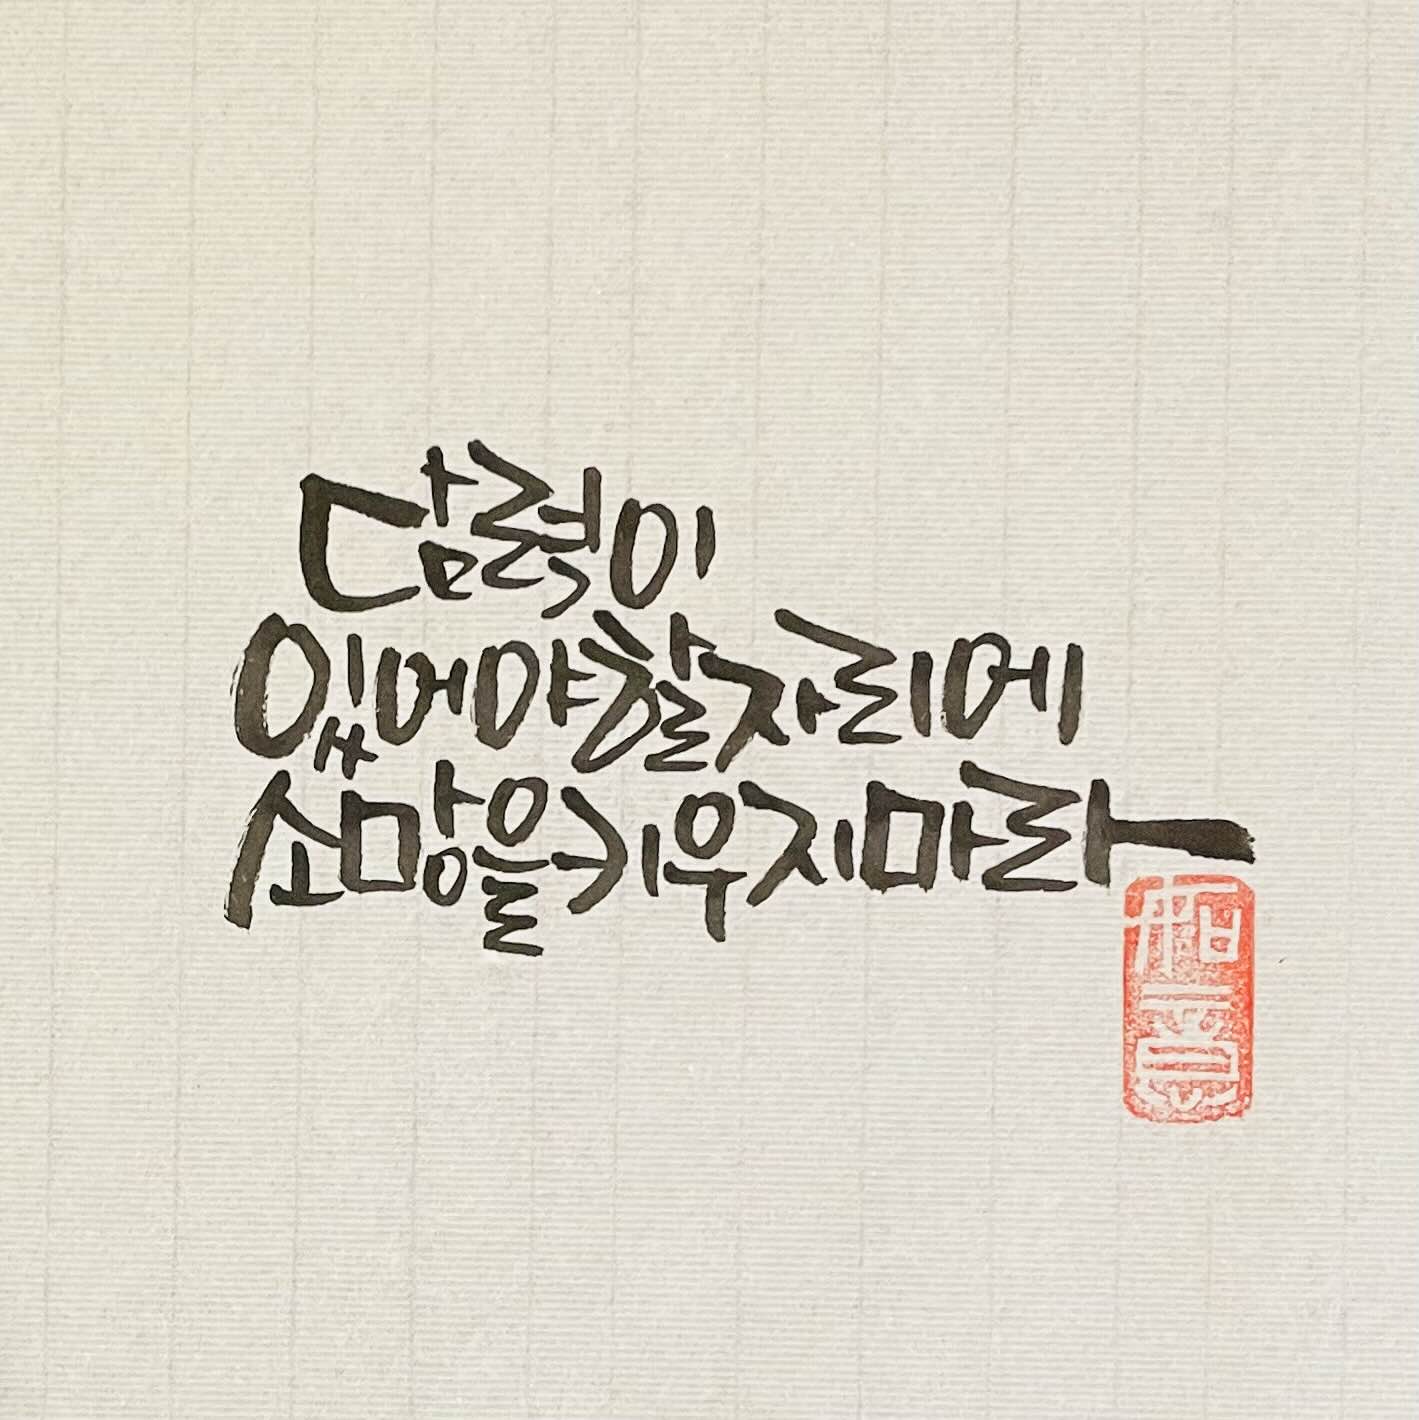 담력이
있어야할자리에
소망을키우지마라